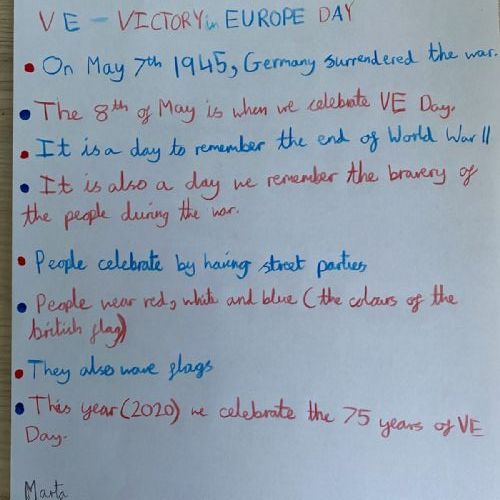 VE - VICTORY in EUROPE DAY
• On May 7th 1945, Germany surrendered the war.
• The 8th of May is when we celebrate VE Day.
• It is a day to remember the end of World War II
• It is also a day we remember the bravery of
the people during the war.
• People celebrate by having street parties
• People wear red, white and blue (the colours of the
british flag)
• They also wave flags
• This year (2020) we celebrate the 75 years of VE
Day.
Marta